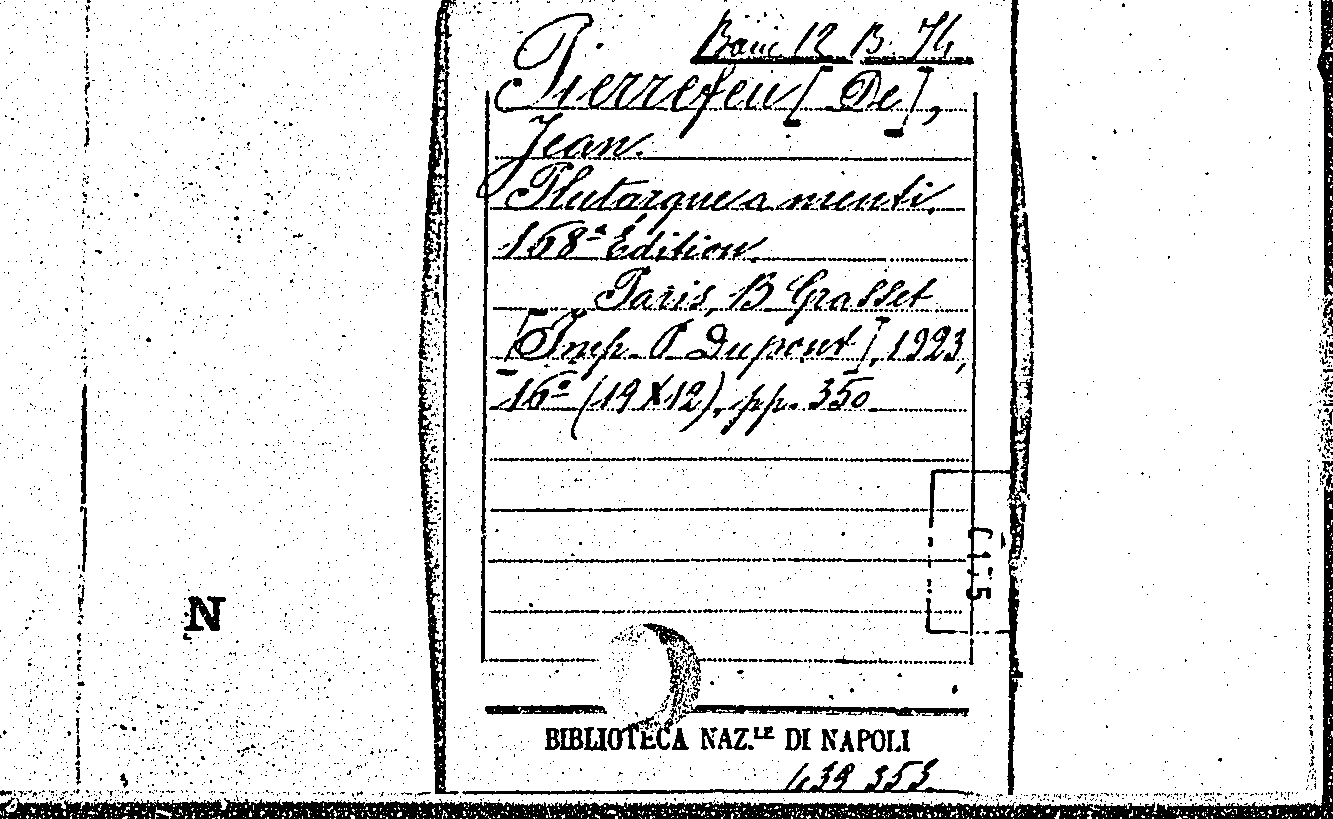 Banc 12 B. 74
Pierrefeu [De],
Jean.
Plutarque a menti.
168ª Édition.
Paris, B. Grasset
[Imp. P. Dupont], 1923,
16º (19X12), pp. 350.
N
BIBLIOTECA NAZ.LE DI NAPOLI
439 353.